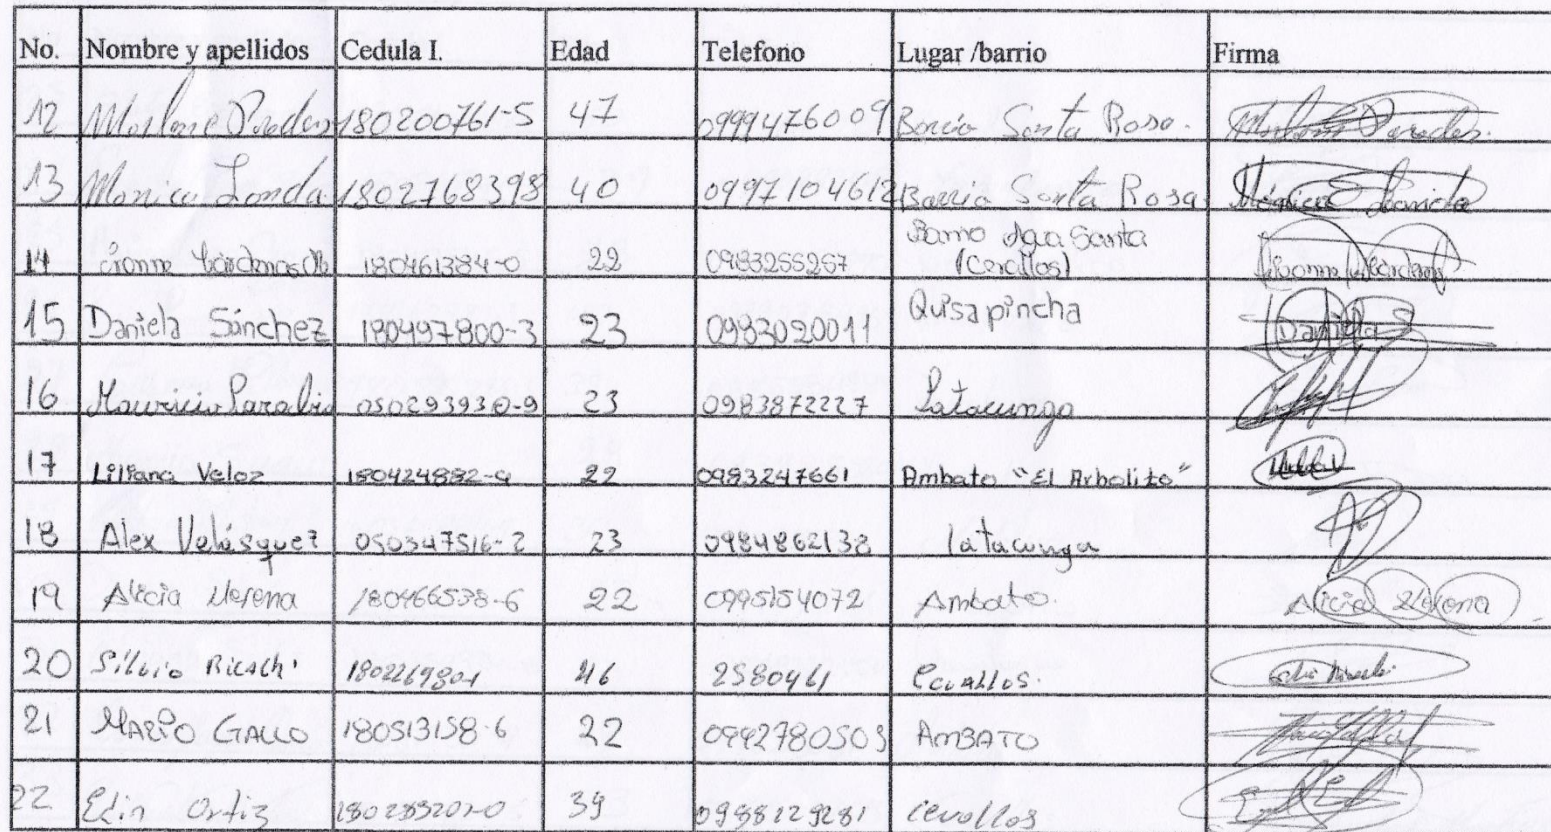 No. Nombre y apellidos Cedula I. Edad Telefono Lugar /barrio Firma
12 Marlene Paredes 180200761-5 47 0999476009 Barrio Santa Rosa. Marlene Paredes.
13 Monica Landa 1802768398 40 0997104612 Barrio Santa Rosa Mónica Landa
14 Cárdenas 180461384-0 22 0983255257 Barrio Agua Santa (Cevallos)
15 Daniela Sánchez 180497800-3 23 0983020011 Quisapincha Daniela S
16 Mauricio 050293930-9 23 0983872227 Latacunga
17 Liliana Veloz 180424882-9 22 0983247661 Ambato "El Arbolito"
18 Alex Velásquez 050347516-2 23 0984862138 latacunga
19 Alicia Llerena 180466538-6 22 0995154072 Ambato. Alicia Llerena
20 Silvio 46 2580461 Cevallos.
21 MARIO GALLO 180513158-6 22 0992780503 AMBATO
22 Edin Ortiz 180283202-0 39 0988129281 cevallos